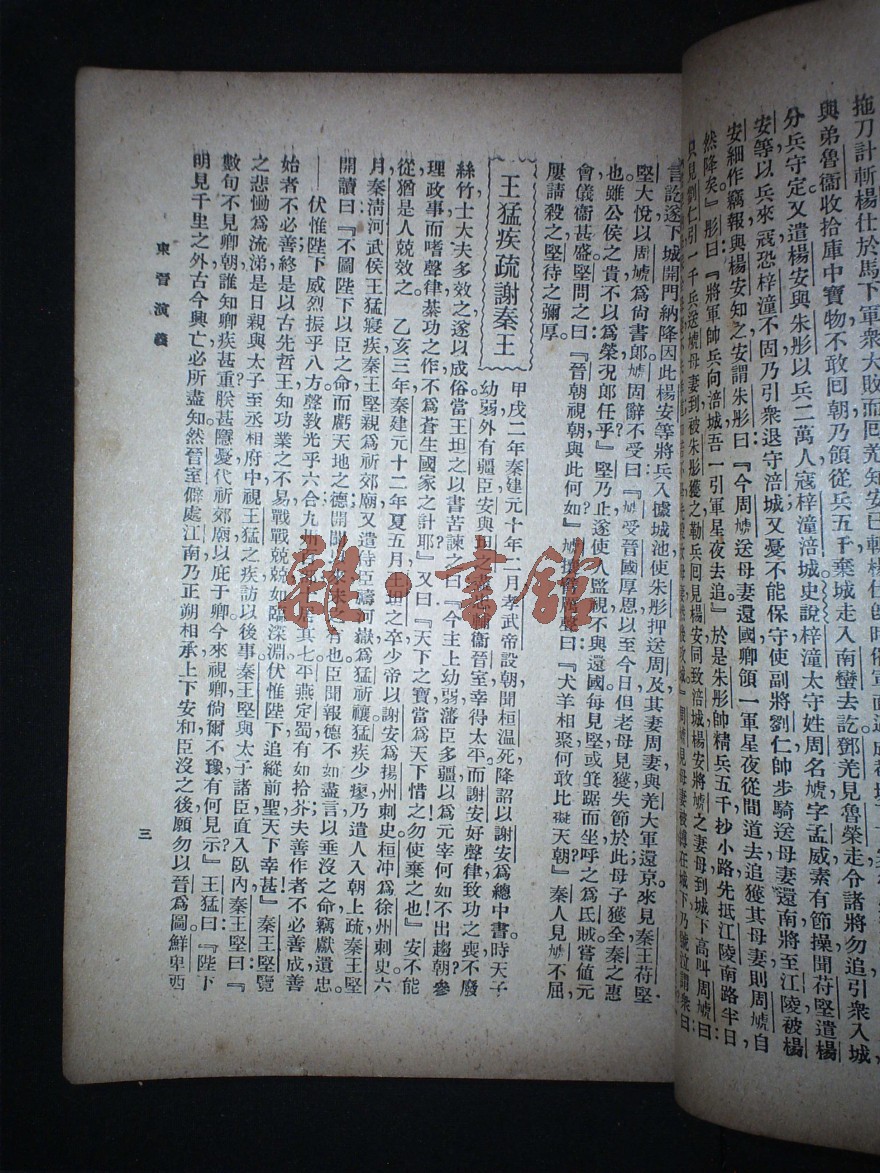 拖刀計斬楊仕於馬下軍衆大敗而回羌知安已
與弟魯衙收拾庫中寶物不敢回朝乃領從兵五千棄城走入南蠻去訖鄧羌見魯榮走令諸將勿追引衆入城
分兵守定又遣楊安與朱彤以兵二萬人寇梓潼涪城史說梓潼太守姓周名虓字孟威素有節操聞苻堅遣楊
安等以兵來寇恐梓潼不固乃引衆退守涪城又憂不能保守使副將劉仁帥步騎送母妻還南將至江陵被楊
安細作竊報與楊安知之安謂朱彤曰『今周虓送母妻還國卿領一軍星夜從間道去追獲其母妻則周虓自
然降矣』彤曰『將軍帥兵向涪城吾一引軍星夜去追』於是朱彤帥精兵五千抄小路先抵江陵南路半日
只見劉仁引一千兵送虓母妻到被朱彤獲之勒兵回見楊安同致涪城楊安將虓之妻母到城下高叫周虓曰
言訖遂下城開門納降因此楊安等將兵入據城池使朱彤押送周及其妻周妻與羌大軍還京來見秦王苻堅
堅大悅以周虓爲尙書郞虓固辭不受曰『虓受晉國厚恩以至今日但老母見獲失節於此母子獲全秦之惠
也雖公侯之貴不以爲榮況郞任乎』堅乃止遂使人監視不與還國每見堅或箕踞而坐呼之爲氐賊嘗値元
會儀衞甚盛堅問之曰『晉朝視朝與此何如』虓攘臂厲聲曰『犬羊相聚何敢比擬天朝』秦人見虓不屈
屢請殺之堅待之彌厚
王猛疾疏謝秦王
甲戌二年秦建元十年二月孝武帝設朝聞桓溫死降詔以謝安爲總中書時天子
幼弱外有疆臣安與坦之盡忠輔衞晉室幸得太平而謝安好聲律致功之喪不廢
絲竹士大夫多效之遂以成俗當王坦之以書苦諫之曰『今主上幼弱藩臣多疆以爲元宰何如不出趨朝參
理政事而嗜聲律棊功之作不爲蒼生國家之計耶』又曰『天下之寶當爲天下惜之勿使棄之也』安不能
從猶是人兢效之 乙亥三年秦建元十二年夏五月王坦之卒少帝以謝安爲揚州刺史桓沖爲徐州刺史六
月秦淸河武侯王猛寢疾秦王堅親爲祈郊廟又遣侍臣禱河嶽爲猛祈禳猛疾少瘳乃遣人入朝上疏秦王堅
開讀曰『不圖陛下以臣之命而虧天地之德開闢以來未之有也臣聞報德不如盡言以垂沒之命竊獻遺忠
——伏惟陛下威烈振乎八方聲敎光乎六合九州百郡十居其七平燕定蜀有如拾芥夫善作者不必善成善
始者不必善終是以古先哲王知功業之不易戰戰兢兢如臨深淵伏惟陛下追縱前聖天下幸甚』秦王堅覽
之悲慟爲流涕是日親與太子至丞相府中視王猛之疾訪以後事秦王堅與太子諸臣直入臥內秦王堅曰『
數句不見卿朝誰知卿疾甚重朕甚隱憂代祈郊廟以庇于卿今來視卿倘爾不豫有何見示』王猛曰『陛下
明見千里之外古今興亡必所盡知然晉室僻處江南乃正朔相承上下安和臣沒之後願勿以晉爲圖鮮卑西
東晉演義
三
雜·書館